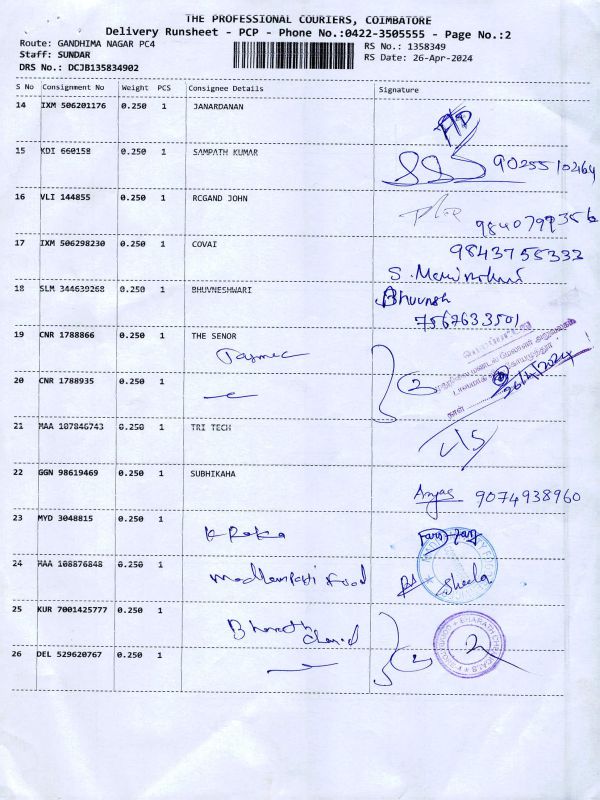 THE PROFESSIONAL COURIERS, COIMBATORE
Delivery Runsheet - PCP - Phone No.:0422-3505555 - Page No.:2
Route: GANDHIMA NAGAR PC4
RS No.: 1358349
Staff: SUNDAR
RS Date: 26-Apr-2024
DRS No.: DCJB135834902
S No Consignment No Weight PCS Consignee Details Signature
14 IXM 506201176 0.250 1 JANARDANAN
15 KDI 660158 0.250 1 SAMPATH KUMAR 9025510264
16 VLI 144855 0.250 1 RCGAND JOHN
9840799356
17 IXM 506298230 0.250 1 COVAI 9843755332
18 SLM 344639268 0.250 1 BHUVNESHWARI Bhuvnesh
7567633501
19 CNR 1788866 0.250 1 THE SENOR
20 CNR 1788935 0.250 1 2 26/4/2024
21 MAA 107846743 0.250 1 TRI TECH
22 GGN 98619469 0.250 1 SUBHIKAHA
9074938960
23 MYD 3048815 0.250 1
24 MAA 108876848 0.250 1 food Sheela
25 KUR 7001425777 0.250 1 Bharath
26 DEL 529620767 0.250 1 2